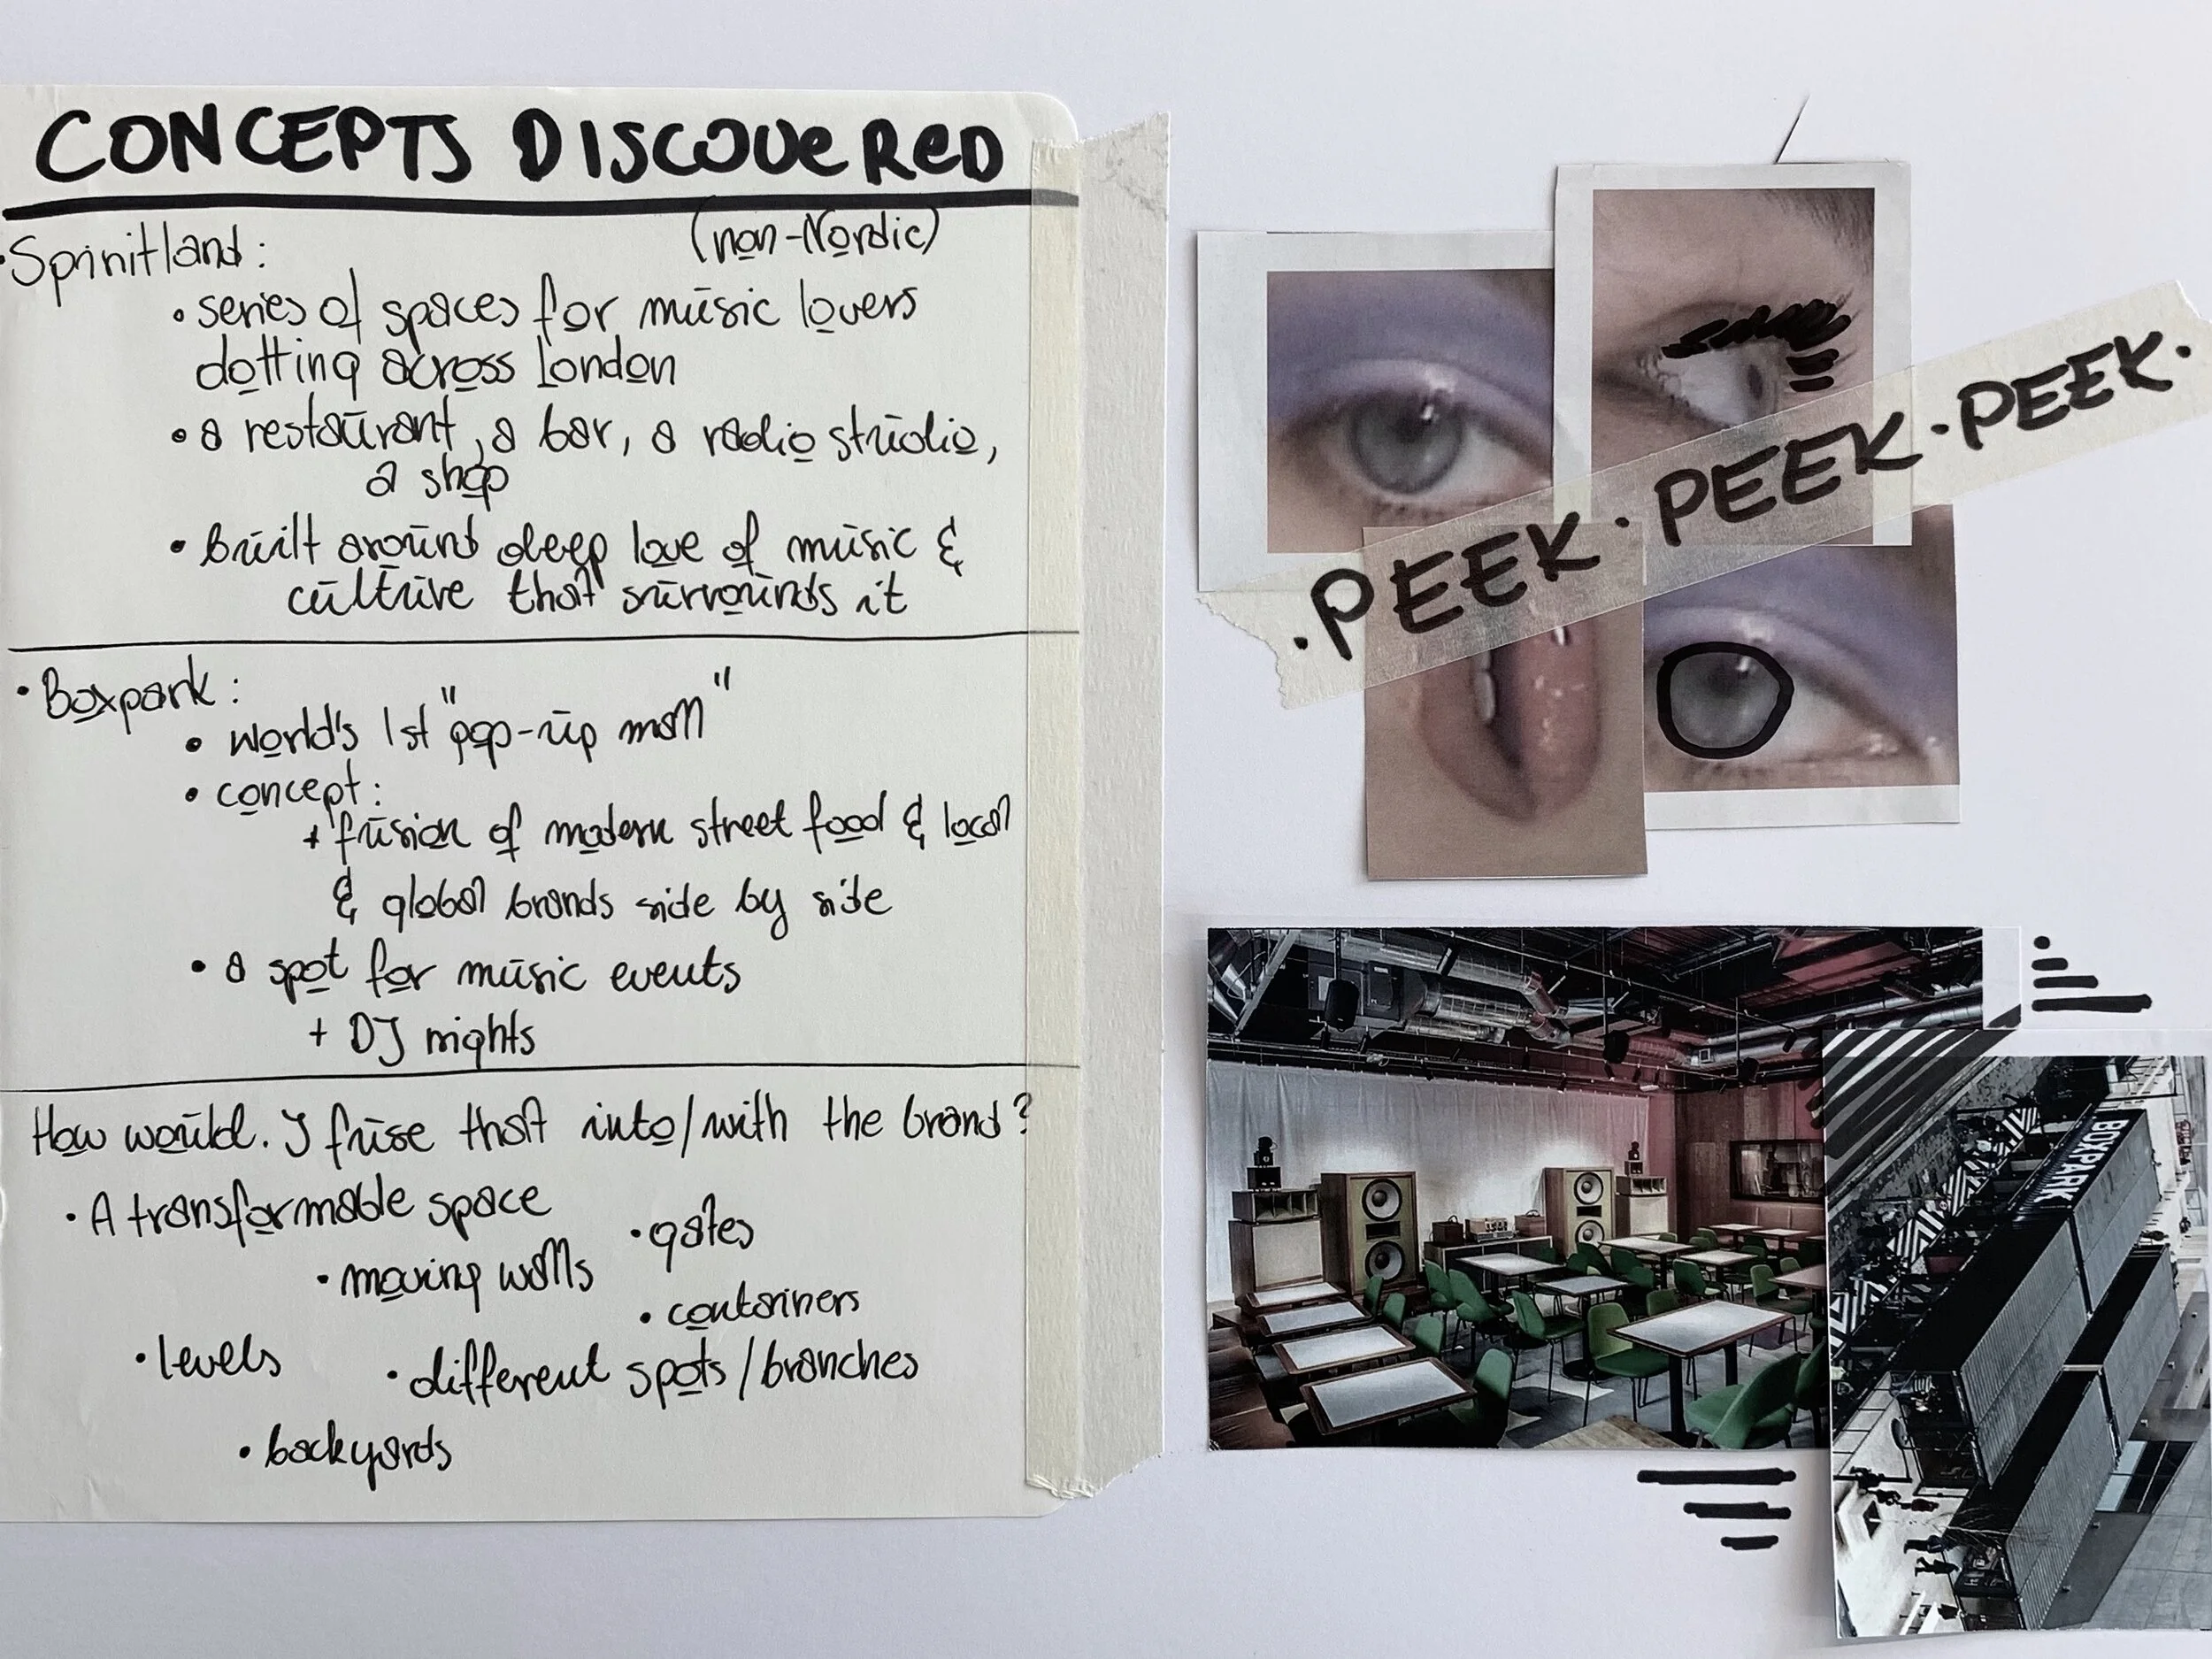 CONCEPTS DISCOVERED
(non-Nordic)
• Spiritland:
• series of spaces for music lovers
dotting across London
• a restaurant, a bar, a radio studio,
a shop
• built around deep love of music &
culture that surrounds it
• Boxpark:
• world's 1st "pop-up mall"
• concept:
+ fusion of modern street food & local
& global brands side by side
• a spot for music events
+ DJ nights
How would I fuse that into/with the brand?
• A transformable space
• gates
• moving walls
• containers
• levels
• different spots/branches
• backyards
• PEEK • PEEK • PEEK •
BOXPARK